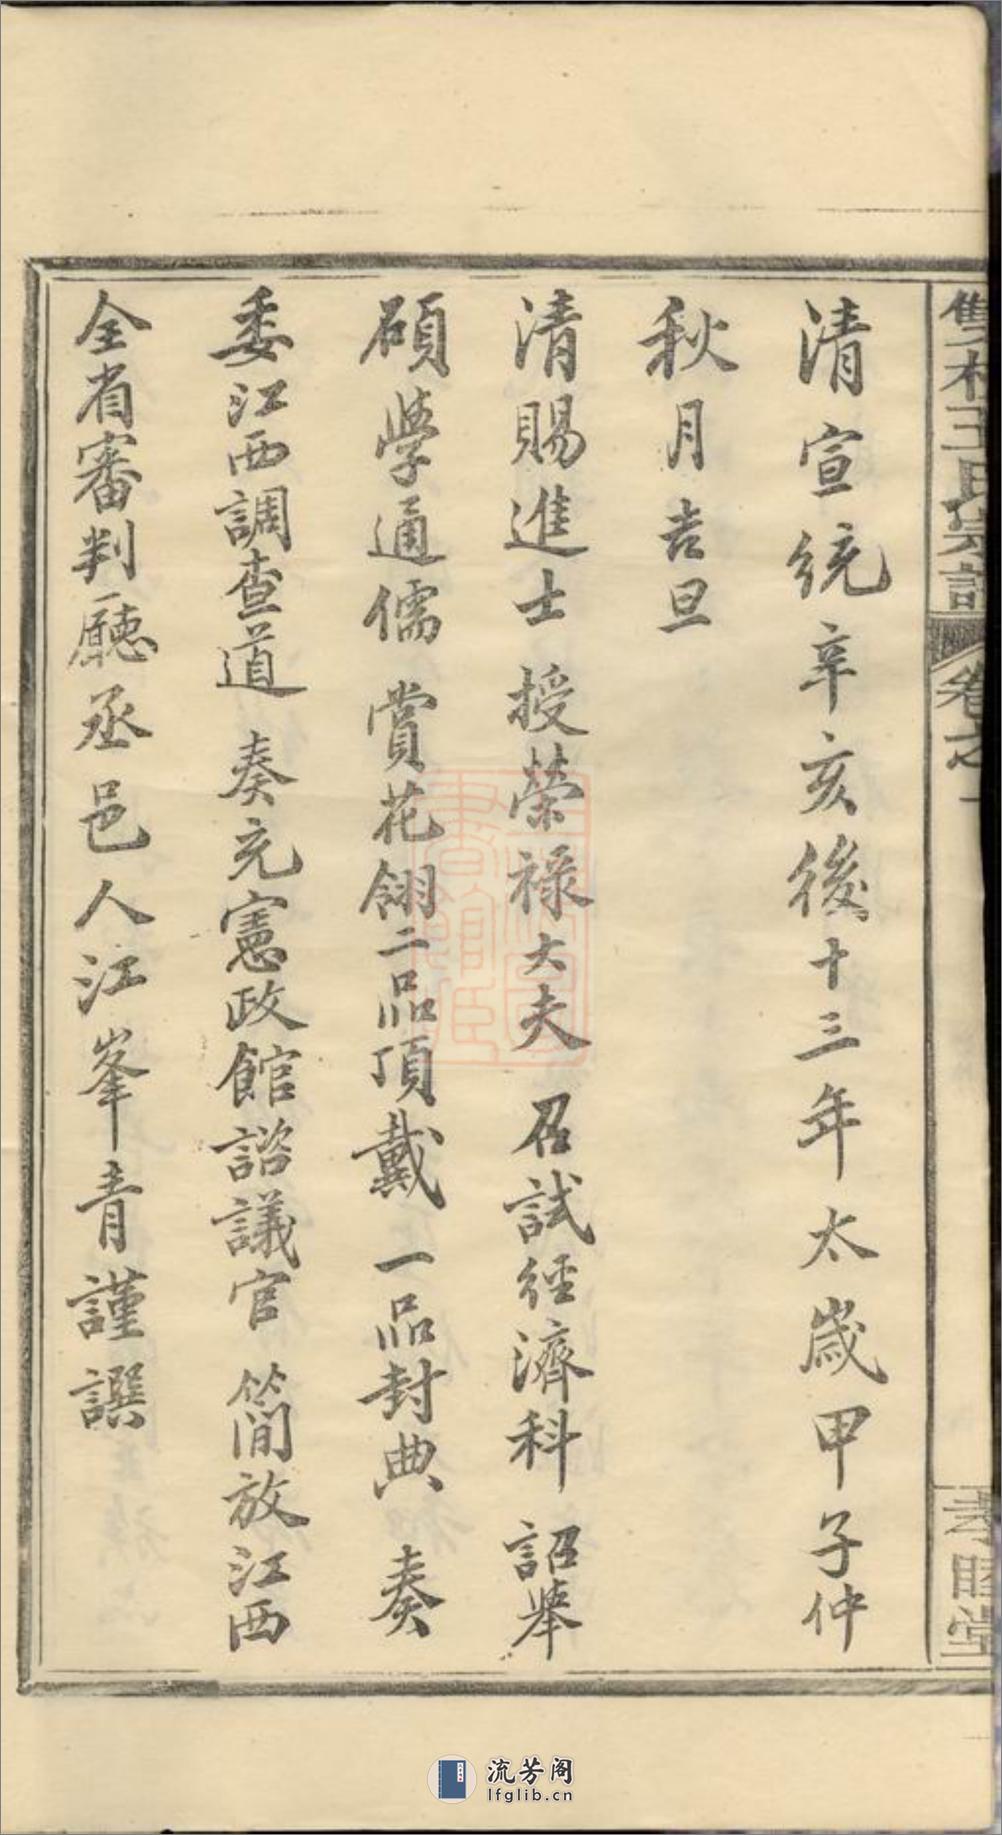 隻杉王氏宗譜
卷之一
孝睦堂
清宣統辛亥後十三年太歲甲子仲
秋月吉旦
清賜進士 授榮祿大夫 召試經濟科 詔舉
碩學通儒 賞花翎二品頂戴 一品封典 奏
委江西調查道 奏充憲政館諮議官 簡放江西
全省審判廳丞邑人江峯青謹譔
流芳阁
lfglib.cn